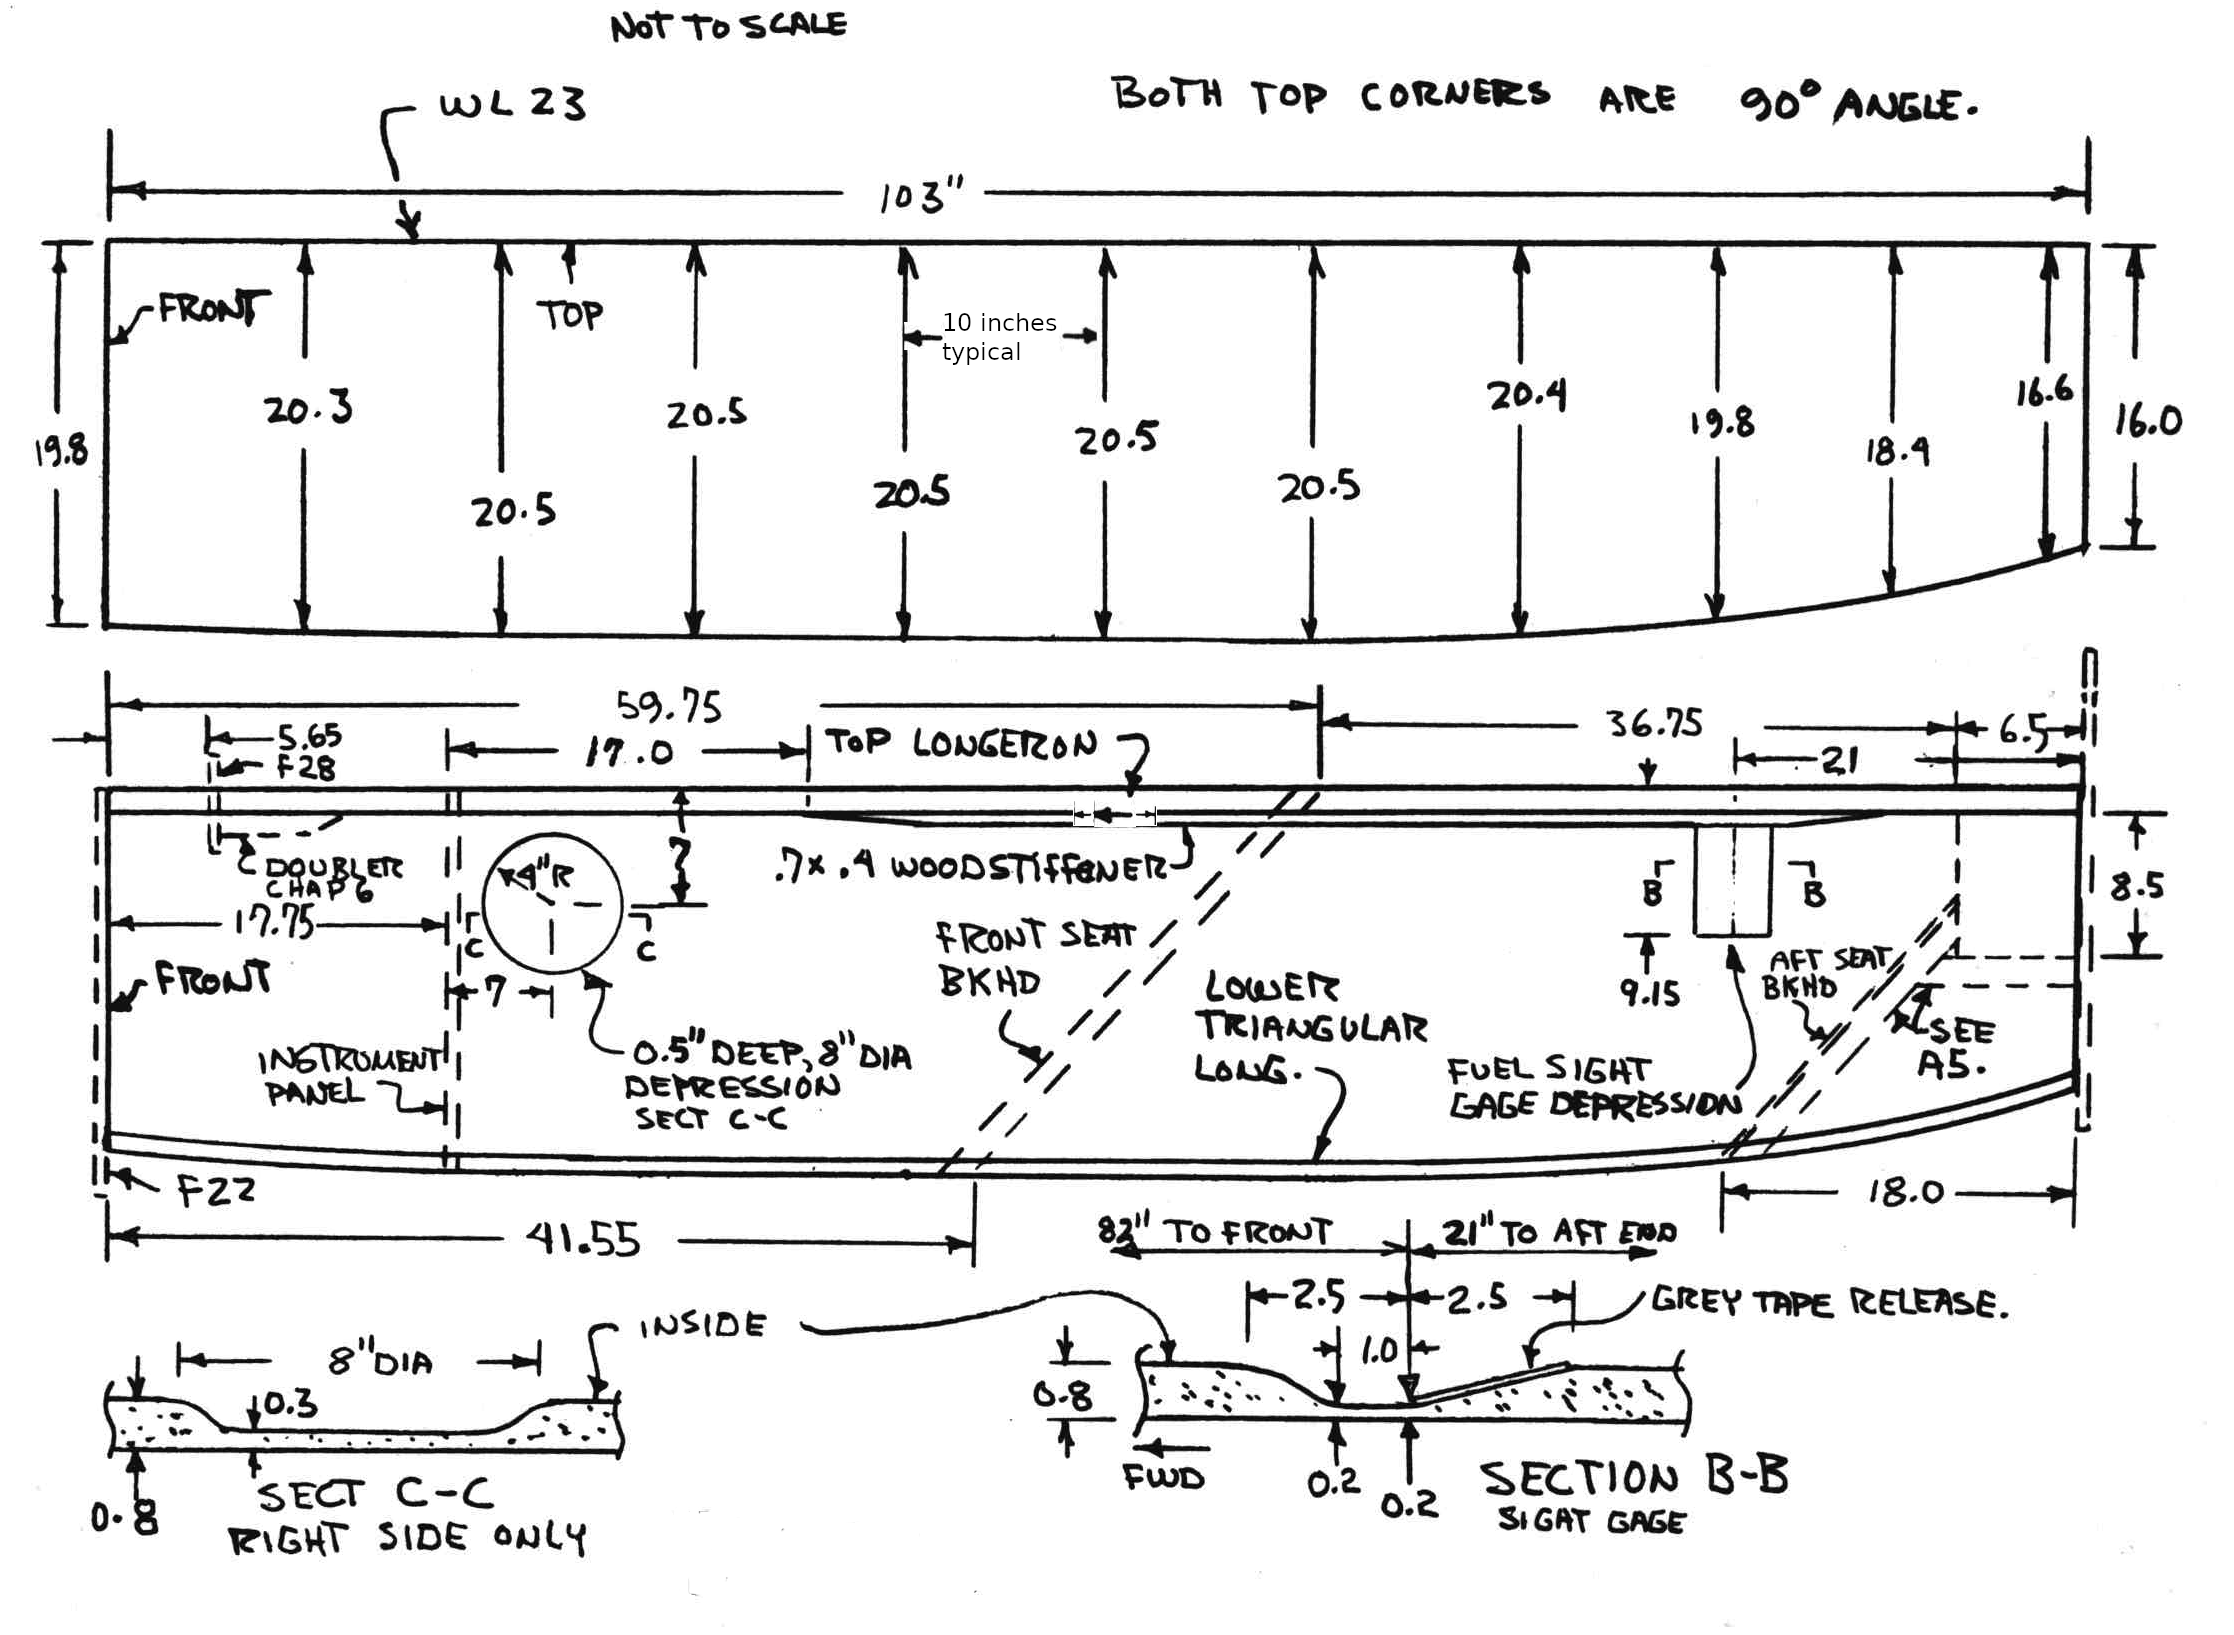 NOT TO SCALE
WL 23
BOTH TOP CORNERS ARE 90° ANGLE.
103"
FRONT
TOP
10 inches
typical
19.8
20.3
20.5
20.5
20.5
20.5
20.5
20.4
19.8
18.4
16.6
16.0
59.75
36.75
6.5
5.65
F28
17.0
TOP LONGERON
21
DOUBLER
CHAP 6
4"R
7
.7 x .4 WOOD STIFFENER
B
B
8.5
17.75
C
C
FRONT SEAT
BKHD
FRONT
7
9.15
AFT SEAT
BKHD
LOWER
TRIANGULAR
LONG.
SEE
A5.
INSTRUMENT
PANEL
0.5" DEEP, 8" DIA
DEPRESSION
SECT C-C
FUEL SIGHT
GAGE DEPRESSION
F22
18.0
41.55
82" TO FRONT
21" TO AFT END
2.5
2.5
GREY TAPE RELEASE.
INSIDE
8" DIA
1.0
0.3
0.8
0.8
FWD
0.2
0.2
SECT C-C
RIGHT SIDE ONLY
SECTION B-B
SIGAT GAGE